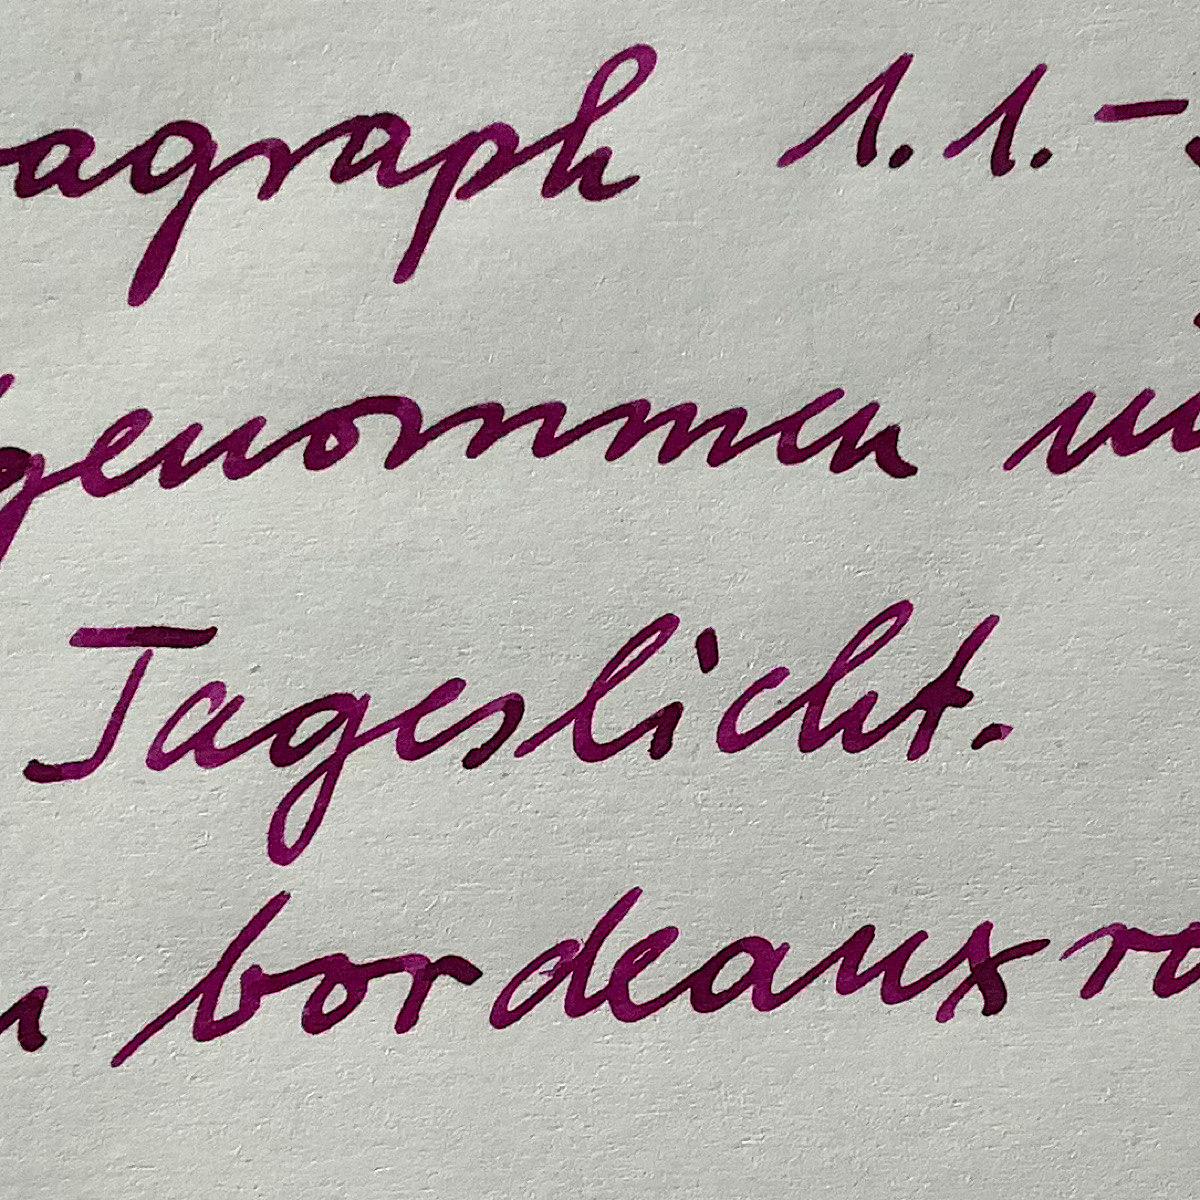 ragraph 1.1.-
genommen
Tageslicht.
bordeauxro